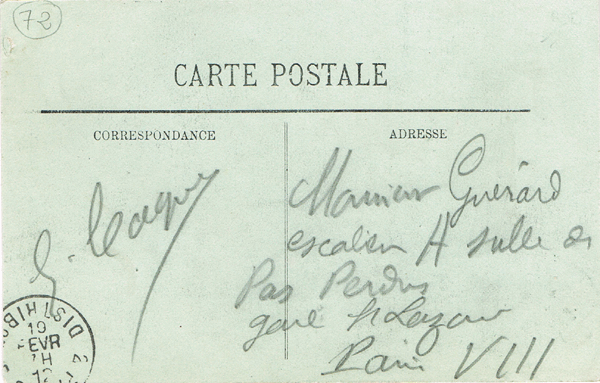 72
CARTE POSTALE
CORRESPONDANCE
ADRESSE
Monsieur Guérard
escalier A salle des
Pas Perdus
gare St Lazare
Paris VIII
DISTRIB
10
FEVR